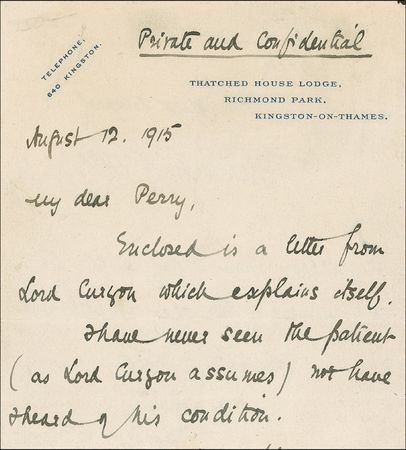 Private and Confidential
TELEPHONE,
640 KINGSTON.
THATCHED HOUSE LODGE,
RICHMOND PARK,
KINGSTON-ON-THAMES.
August 12. 1915
My dear Perry,
Enclosed is a letter from
Lord Curzon which explains itself.
I have never seen the patient
(as Lord Curzon assumes) not have
I heard of his condition.